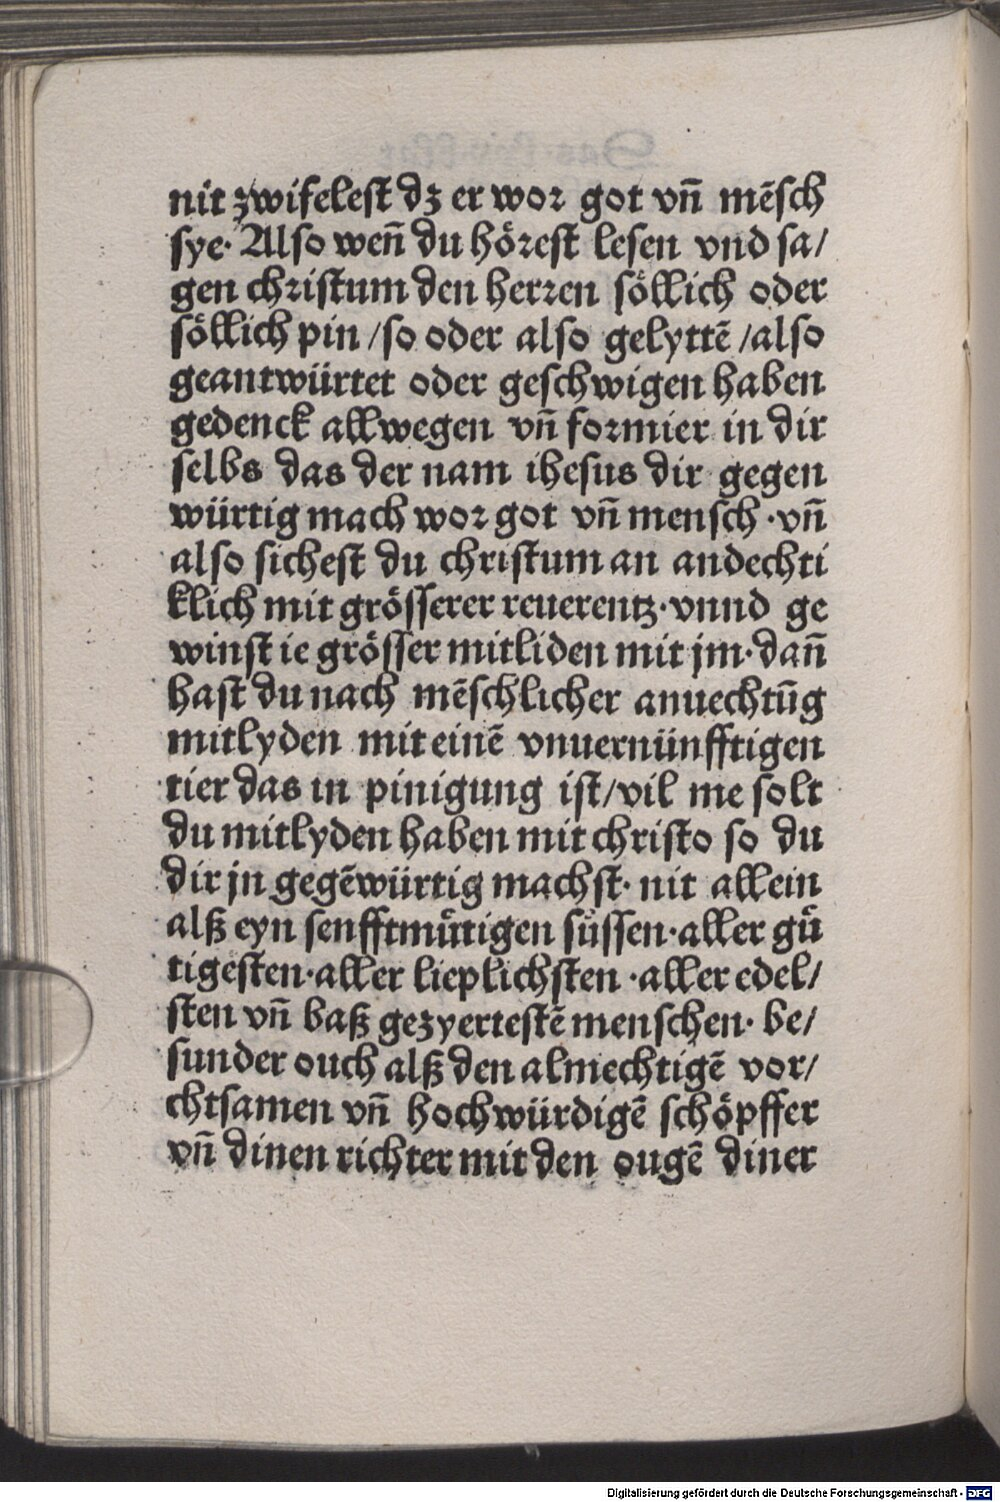 nit zwifelest dz er wor got vn̄ mēsch
sye· Also wen̄ du hörest lesen vnd sa/
gen christum den herren söllich oder
söllich pin /so oder also gelyttē /also
geantwürtet oder geschwigen haben
gedenck allwegen vn̄ formier in dir
selbs das der nam ihesus dir gegen
würtig mach wor got vn̄ mensch ·vn̄
also sichest du christum an andechti
klich mit grösserer reuerentz·vnnd ge
winst ie grösser mitliden mit jm· dan̄
hast du nach mēschlicher anuechtūg
mitlyden mit einē vnuernünfftigen
tier das in pinigung ist/vil me solt
du mitlyden haben mit christo so du
dir jn gegēwürtig machst· nit allein
alß eyn senfftmůtigen sůssen·aller gů
tigesten·aller lieplichsten ·aller edel/
sten vn̄ baß gezyertestē menschen· be/
sunder ouch alß den almechtigē vor/
chtsamen vn̄ hochwürdigē schöpffer
vn̄ dinen richter mit den ougē diner
Digitalisierung gefördert durch die Deutsche Forschungsgemeinschaft - DFG